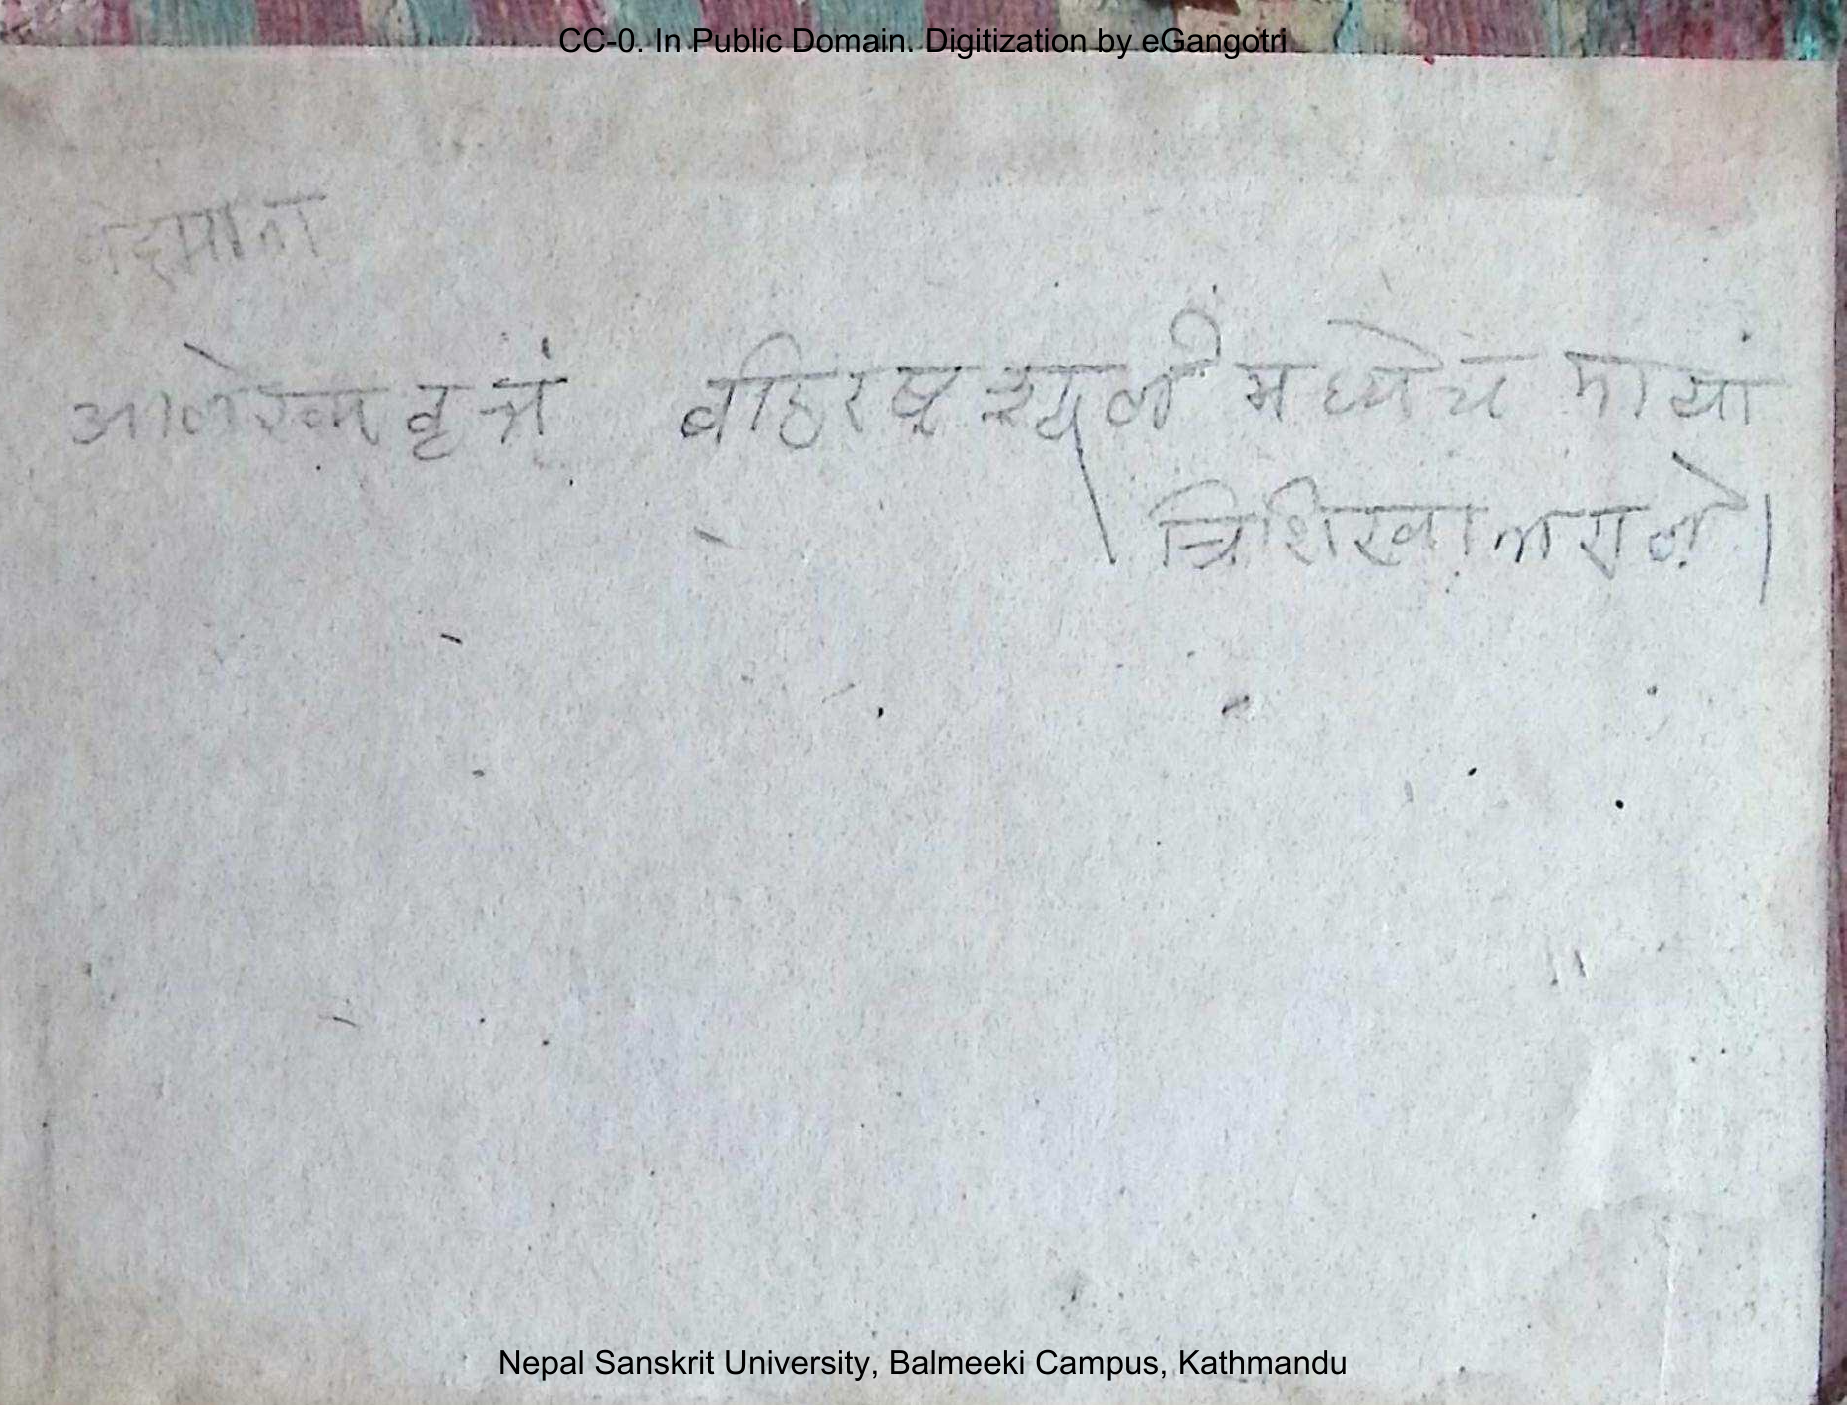 CC-0. In Public Domain. Digitization by eGangotri
आलेख्य वृत्तं वहिरष्ट शूलीं मध्येच मायां
त्रिशिखान्तराले।
Nepal Sanskrit University, Balmeeki Campus, Kathmandu